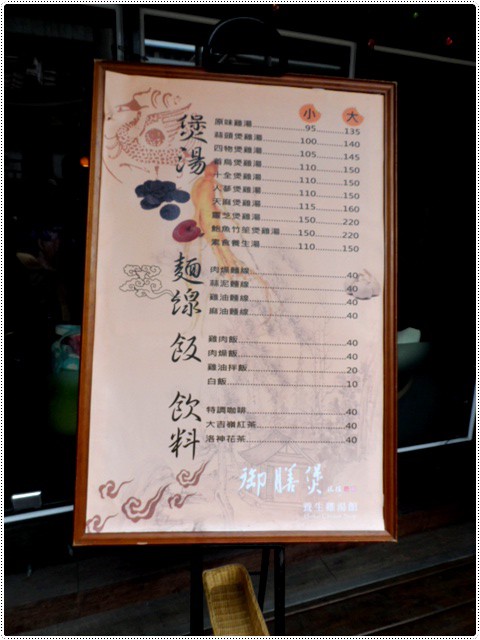 小 大
煲湯
原味雞湯 95 135
蒜頭煲雞湯 100 140
四物煲雞湯 105 145
首烏煲雞湯 110 150
十全煲雞湯 110 150
人蔘煲雞湯 110 150
天麻煲雞湯 115 160
靈芝煲雞湯 150 220
鮑魚竹笙煲雞湯 150 220
素食養生湯 110 150
麵線
肉燥麵線 40
蒜泥麵線 40
雞油麵線 40
麻油麵線 40
飯
雞肉飯 40
肉燥飯 40
雞油拌飯 20
白飯 10
飲料
特調咖啡 40
大吉嶺紅茶 40
洛神花茶 40
御膳煲
養生雞湯館